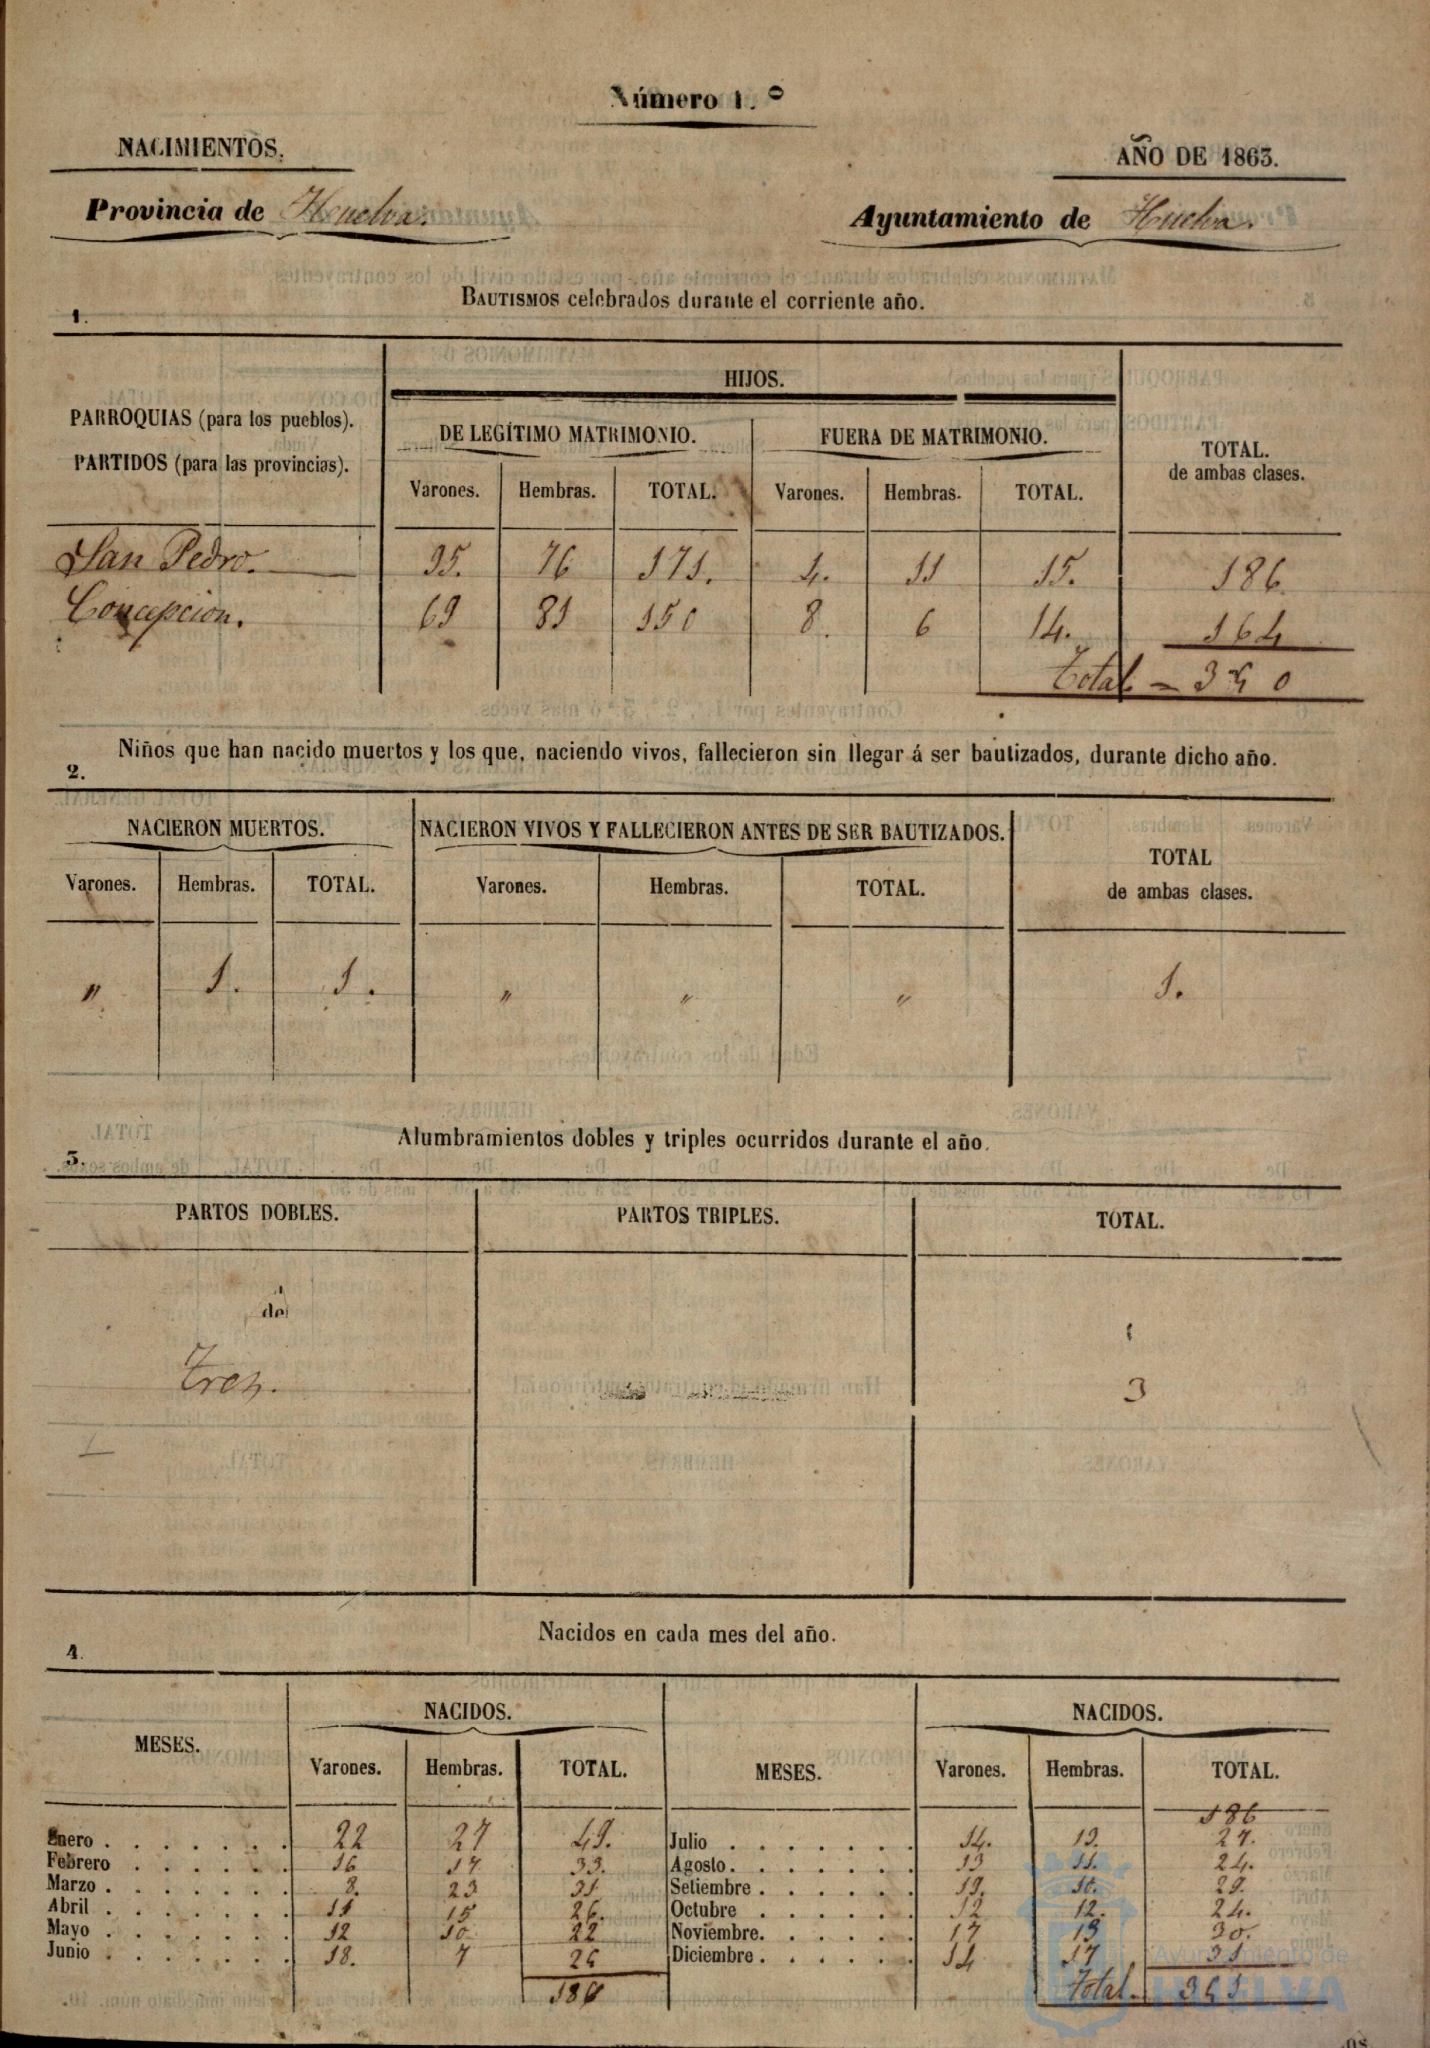 Número 1.º
NACIMIENTOS.
AÑO DE 1863.
Provincia de Huelva.
Ayuntamiento de Huelva.
BAUTISMOS celebrados durante el corriente año.
1.
HIJOS.
PARROQUIAS (para los pueblos).
PARTIDOS (para las provincias).
DE LEGÍTIMO MATRIMONIO.
FUERA DE MATRIMONIO.
TOTAL.
de ambas clases.
Varones. Hembras. TOTAL. Varones. Hembras. TOTAL.
San Pedro. 95. 76 171. 4. 11 15. 186
Concepcion. 69 81 150 8. 6 14. 164
Total - 350
Niños que han nacido muertos y los que, naciendo vivos, fallecieron sin llegar á ser bautizados, durante dicho año.
2.
NACIERON MUERTOS.
NACIERON VIVOS Y FALLECIERON ANTES DE SER BAUTIZADOS.
TOTAL
de ambas clases.
Varones. Hembras. TOTAL. Varones. Hembras. TOTAL.
" 1. 1. " " " 1.
Alumbramientos dobles y triples ocurridos durante el año.
3.
PARTOS DOBLES. PARTOS TRIPLES. TOTAL.
de
Tres. 3
Nacidos en cada mes del año.
4.
MESES.
NACIDOS.
Varones. Hembras. TOTAL.
MESES.
NACIDOS.
Varones. Hembras. TOTAL.
186
Enero 22 27 49. Julio 14. 13. 27.
Febrero 16 17 33. Agosto 13 11. 24.
Marzo 8. 23 31 Setiembre 19. 10. 29.
Abril 11 15 26. Octubre 12 12. 24.
Mayo 12 10 22 Noviembre. 17 13 30.
Junio 18. 7 25 Diciembre 14 17 31
186 Total. 351
Ayuntamiento de
HUELVA